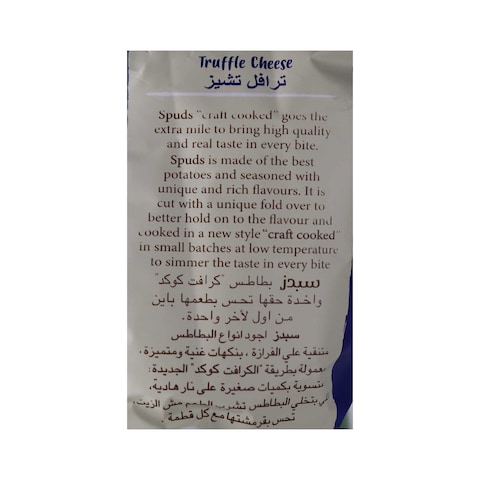 Truffle Cheese
ترافل تشيز
Spuds "craft cooked" goes the
extra mile to bring high quality
and real taste in every bite.
Spuds is made of the best
potatoes and seasoned with
unique and rich flavours. It is
cut with a unique fold over to
better hold on to the flavour and
cooked in a new style "craft cooked"
in small batches at low temperature
to simmer the taste in every bite
سبدز بطاطس "كرافت كوكد"
واخدة حقها تحس بطعمها باين
من اول لآخر واحدة.
سبدز اجود انواع البطاطس
متنقية علي الفرازة، بنكهات غنية ومتميزة،
معمولة بطريقة "الكرافت كوكد" الجديدة:
بتتسوية بكميات صغيرة على نار هادية،
بتخلي البطاطس تشرب الطعم مش الزيت،
تحس بقرمشتها مع كل قطمة.